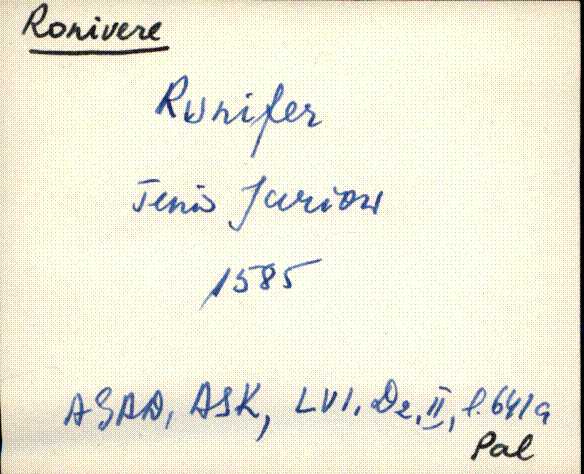 Ronivere
Runifer
Tenis Jurion
1585
AGAD, ASK, LVI. De, II, f. 641a
Pal